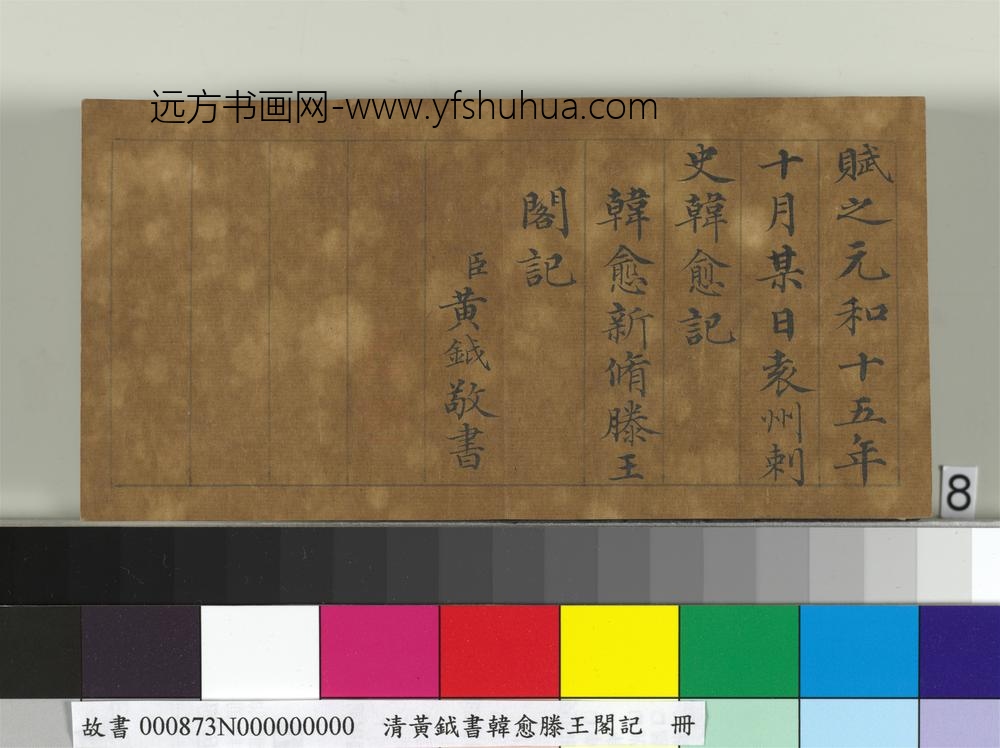 远方书画网-www.yfshuhua.com
賦之元和十五年
十月某日袁州刺
史韓愈記
韓愈新脩滕王
閣記
臣黃鉞敬書
8
故書 000873N000000000 清黃鉞書韓愈滕王閣記 冊